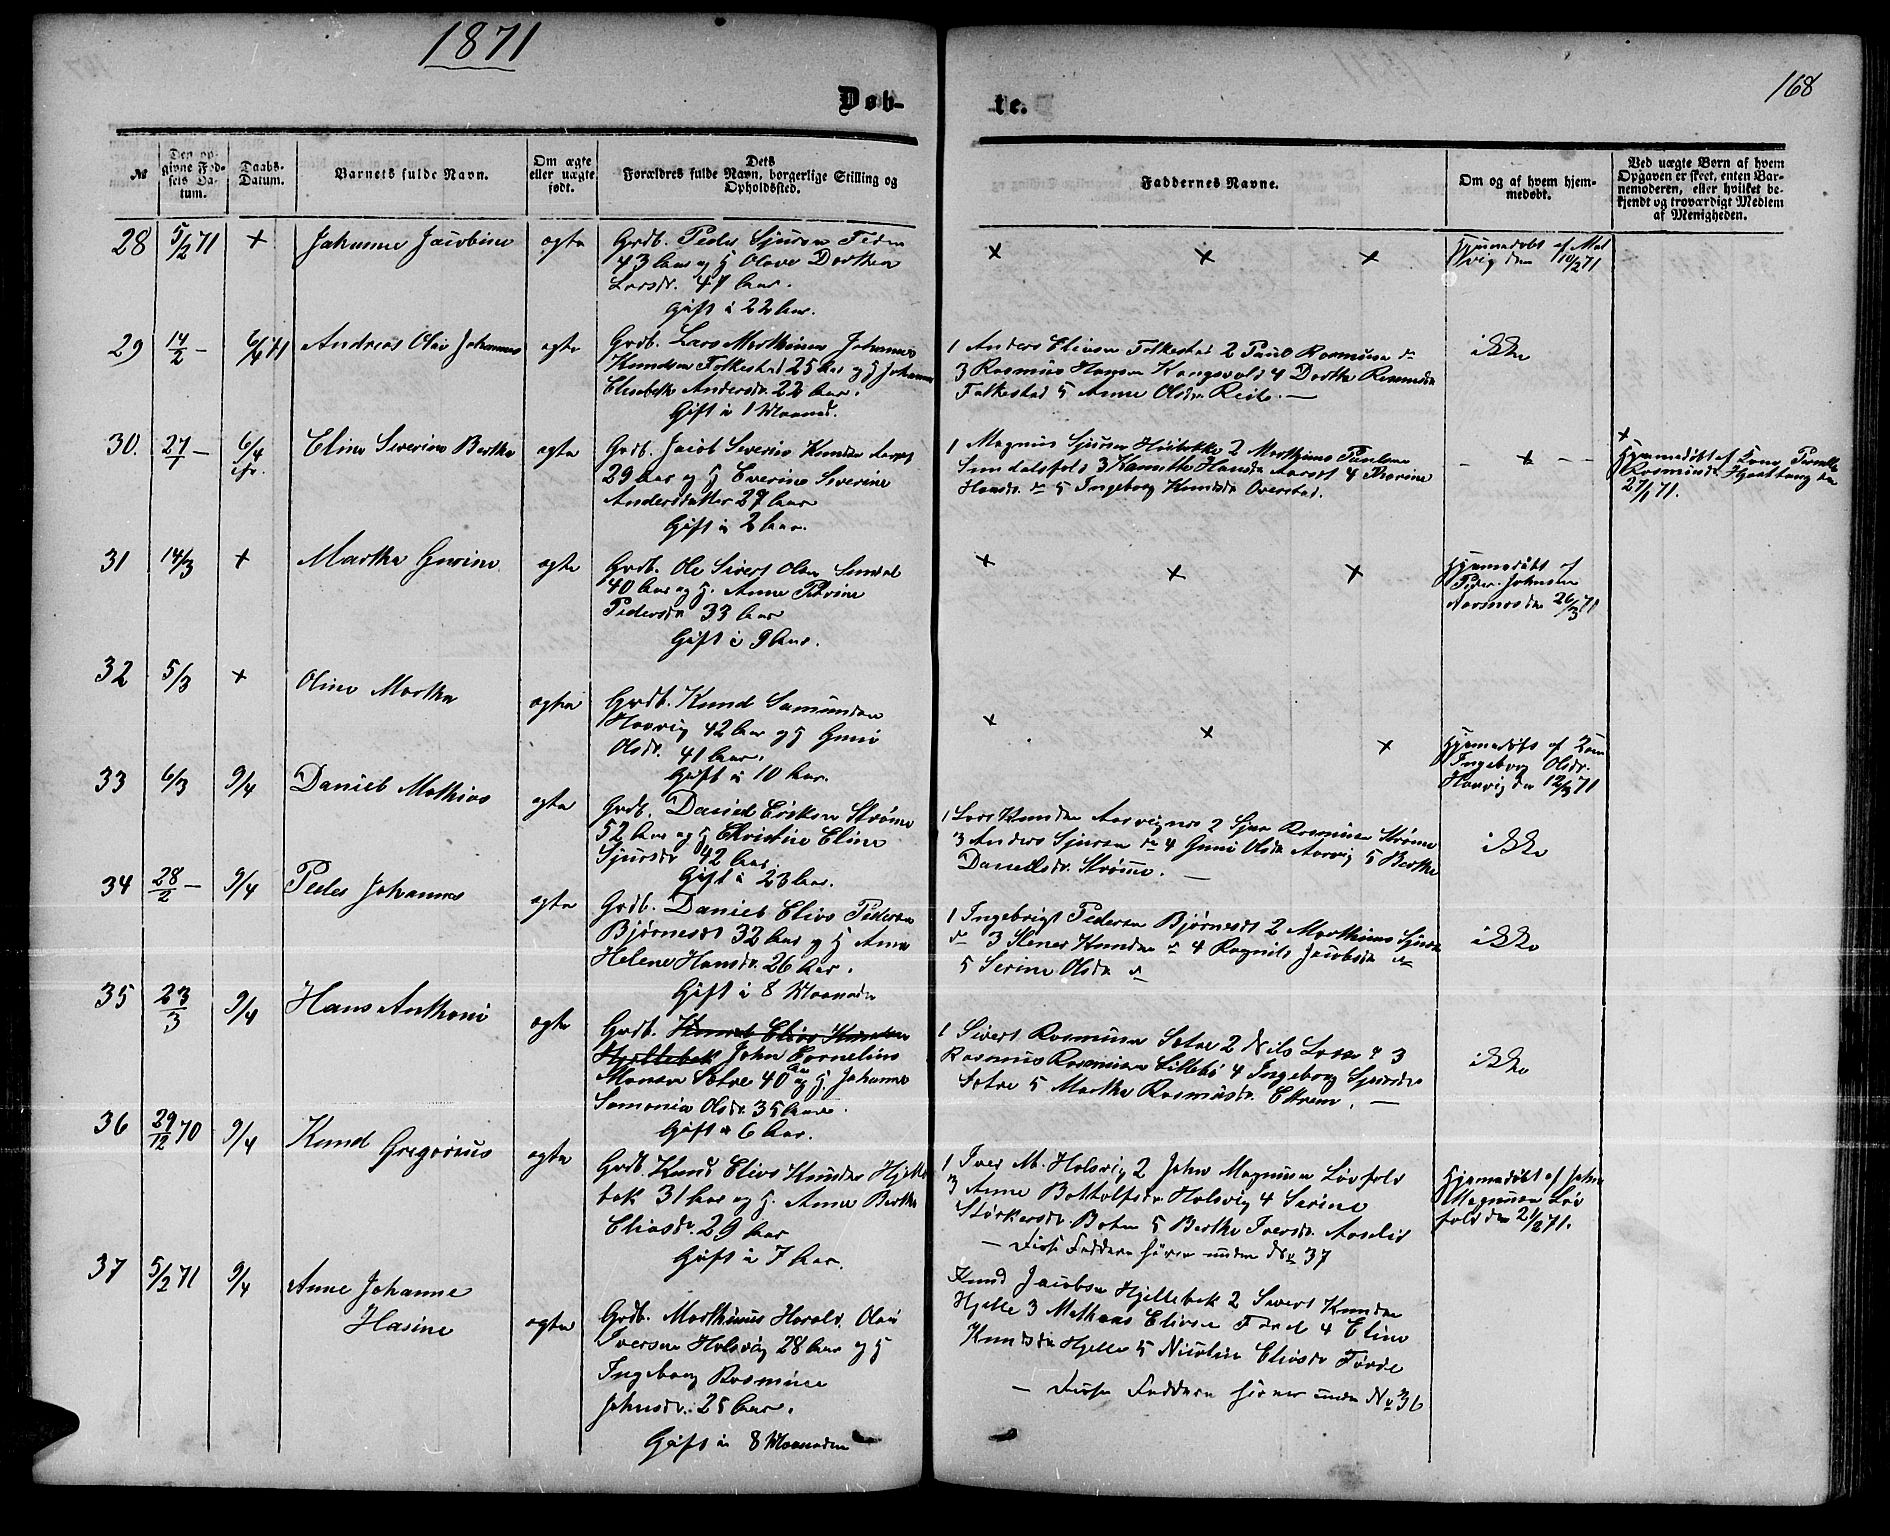 1871
168
Døb-
te.
№
Den op-
givne Fød-
sels Da-
tum.
Daabs-
Datum.
Barnets fulde Navn.
Om ægte
eller uægte
født.
Dets
Forældres fulde Navn, borgerlige Stilling og
Opholdssted.
Faddernes Navne.
Om og af hvem hjem-
medøbt.
Ved uægte Børn af hvem
Opgaven er skeet, enten Bar-
nemoderen, eller hvilket be-
kjendt og troværdigt Medlem
af Menigheden.
28 5/2 71 + Johanne Jacobine ægte
Grdb. Peder Sjursen
43 Aar og H Olave Dorthea
Larsdr. 47 Aar.
Gift i 22 Aar.
+ + +
Hjemmedøbt af
vig den 10/2 71
29 14/2 — 6/4 71 Andreas Olai Johannes ægte
Grdb. Lars Marthinus Johannes
Knudsen Folkestad 25 Aar og H Johanne
Elisabeth Andersdr. 22 Aar.
Gift i 1 Maaned.
1 Anders Eliasen Folkestad 2 Paul Rasmusen do
3 Rasmus Hansen Kongsvold 4 Dorthe Rasmusdr
Folkestad 5 Anne Olsdr. Reite. —
ikke
30. 27/1 — 6/4 Eline Severine Berthe ægte
Grdb. Jacob Severin Knudsen
29 Aar og H Everine Severine
Andersdatter 27 Aar
Gift i 2 Aar.
1 Magnus Sjursen 2 Marthinus Paulsen
Sundalsfold 3 Hansdr. 4
Hansdr. do 5 Ingeborg Knudsdr Overstad.
— + — —
+
Hjemmedøbt af Kone Pernille
Rasmusdr. Hjorthaug den
27/1 71.
31 14/3 + Marthe Gurine ægte
Grdb. Ole Sivert Olsen Sundal
40 Aar og H. Anne Petrine
Pedersdr 33 Aar
Gift i 9 Aar.
+ + +
Hjemmedøbt af
Peder Johnsen
26/3 71
32 5/3 + Oline Marthe ægte
Grdb. Knud Samundsen
Hovvig 42 Aar og H Guri
Olsdr. 41 Aar.
Gift i 10 Aar.
+ + +
Hjemmedøbt af
Ingeborg Olsdr.
Hovvig den 12/3 71
33 6/3 9/4 Daniel Mathias ægte
Grdb. Daniel Eriksen Strøme
52 Aar og H Christine Eline
Sjursdr 42 Aar.
Gift i 23 Aar.
1 Lars Knudsen 2 Sjur Rasmusen Strøme
3 Anders Sjursen do 4 Guri Olsdr Aarvig 5 Berthe
Danielsdr. Strømme. —
ikke
34 28/2 — 9/4 Peder Johannes ægte
Grdb. Daniel Elias Pedersen
Bjørnesdt 32 Aar og H Anne
Helene Hansdr. 26 Aar.
Gift i 8 Maaneder
1 Ingebrigt Pedersen Bjørnesdt 2 Marthinus Sjursen
do 3 Knudsen do 4 Ragnild Jacobsdr do
5 Serine Olsdr do
ikke
35 23/3 9/4 Hans Anthoni ægte
Grdb. Knud Elias Knudsen
Hjellebak John Cornelius
Monsen Sætre 40 Aar og H. Johanne
Samonia Olsdr. 35 Aar.
Gift i 6 Aar.
1 Sivert Rasmusen Sætre 2 Nils Larsen do 3
Rasmus Rasmusen Lillebø 4 Ingeborg Sjursdr
Sætre 5 Marthe Rasmusdr. Ekrem. —
ikke
36 29/12 70 9/4 Knud Gregorius ægte
Grdb. Knud Elias Knudsen Hjelle
bak 31 Aar og H. Anne Berthe
Eliasdr. 29 Aar
Gift i 7 Aar.
1 Iver M. Holsvig 2 John Magnusen Løvfold
3 Anne Bottolfsdr. Holsvig 4 Serine
Størkersdr. Botn 5 Berthe Iversdr. Aaselid
— Disse Faddere hører under No 37
Hjemmedøbt af John
Magnusen Løv
fold den 2/1 71.
37 5/2 71 9/4 Anne Johanne
Hasine ægte
Grdb. Marthinus Harald Olai
Iversen Holsvig 28 Aar og H
Ingeborg Rasmine
Johnsdr. 25 Aar.
Gift i 8 Maaneder
Knud Jacobsen Hjellebak 2 Sivert Knudsen
Hjelle 3 Mathias Eliasen Førde 4 Eline
Knudsdr Hjelle 5 Nicoline Eliasdr Førde
— Disse Faddere hører under No 36